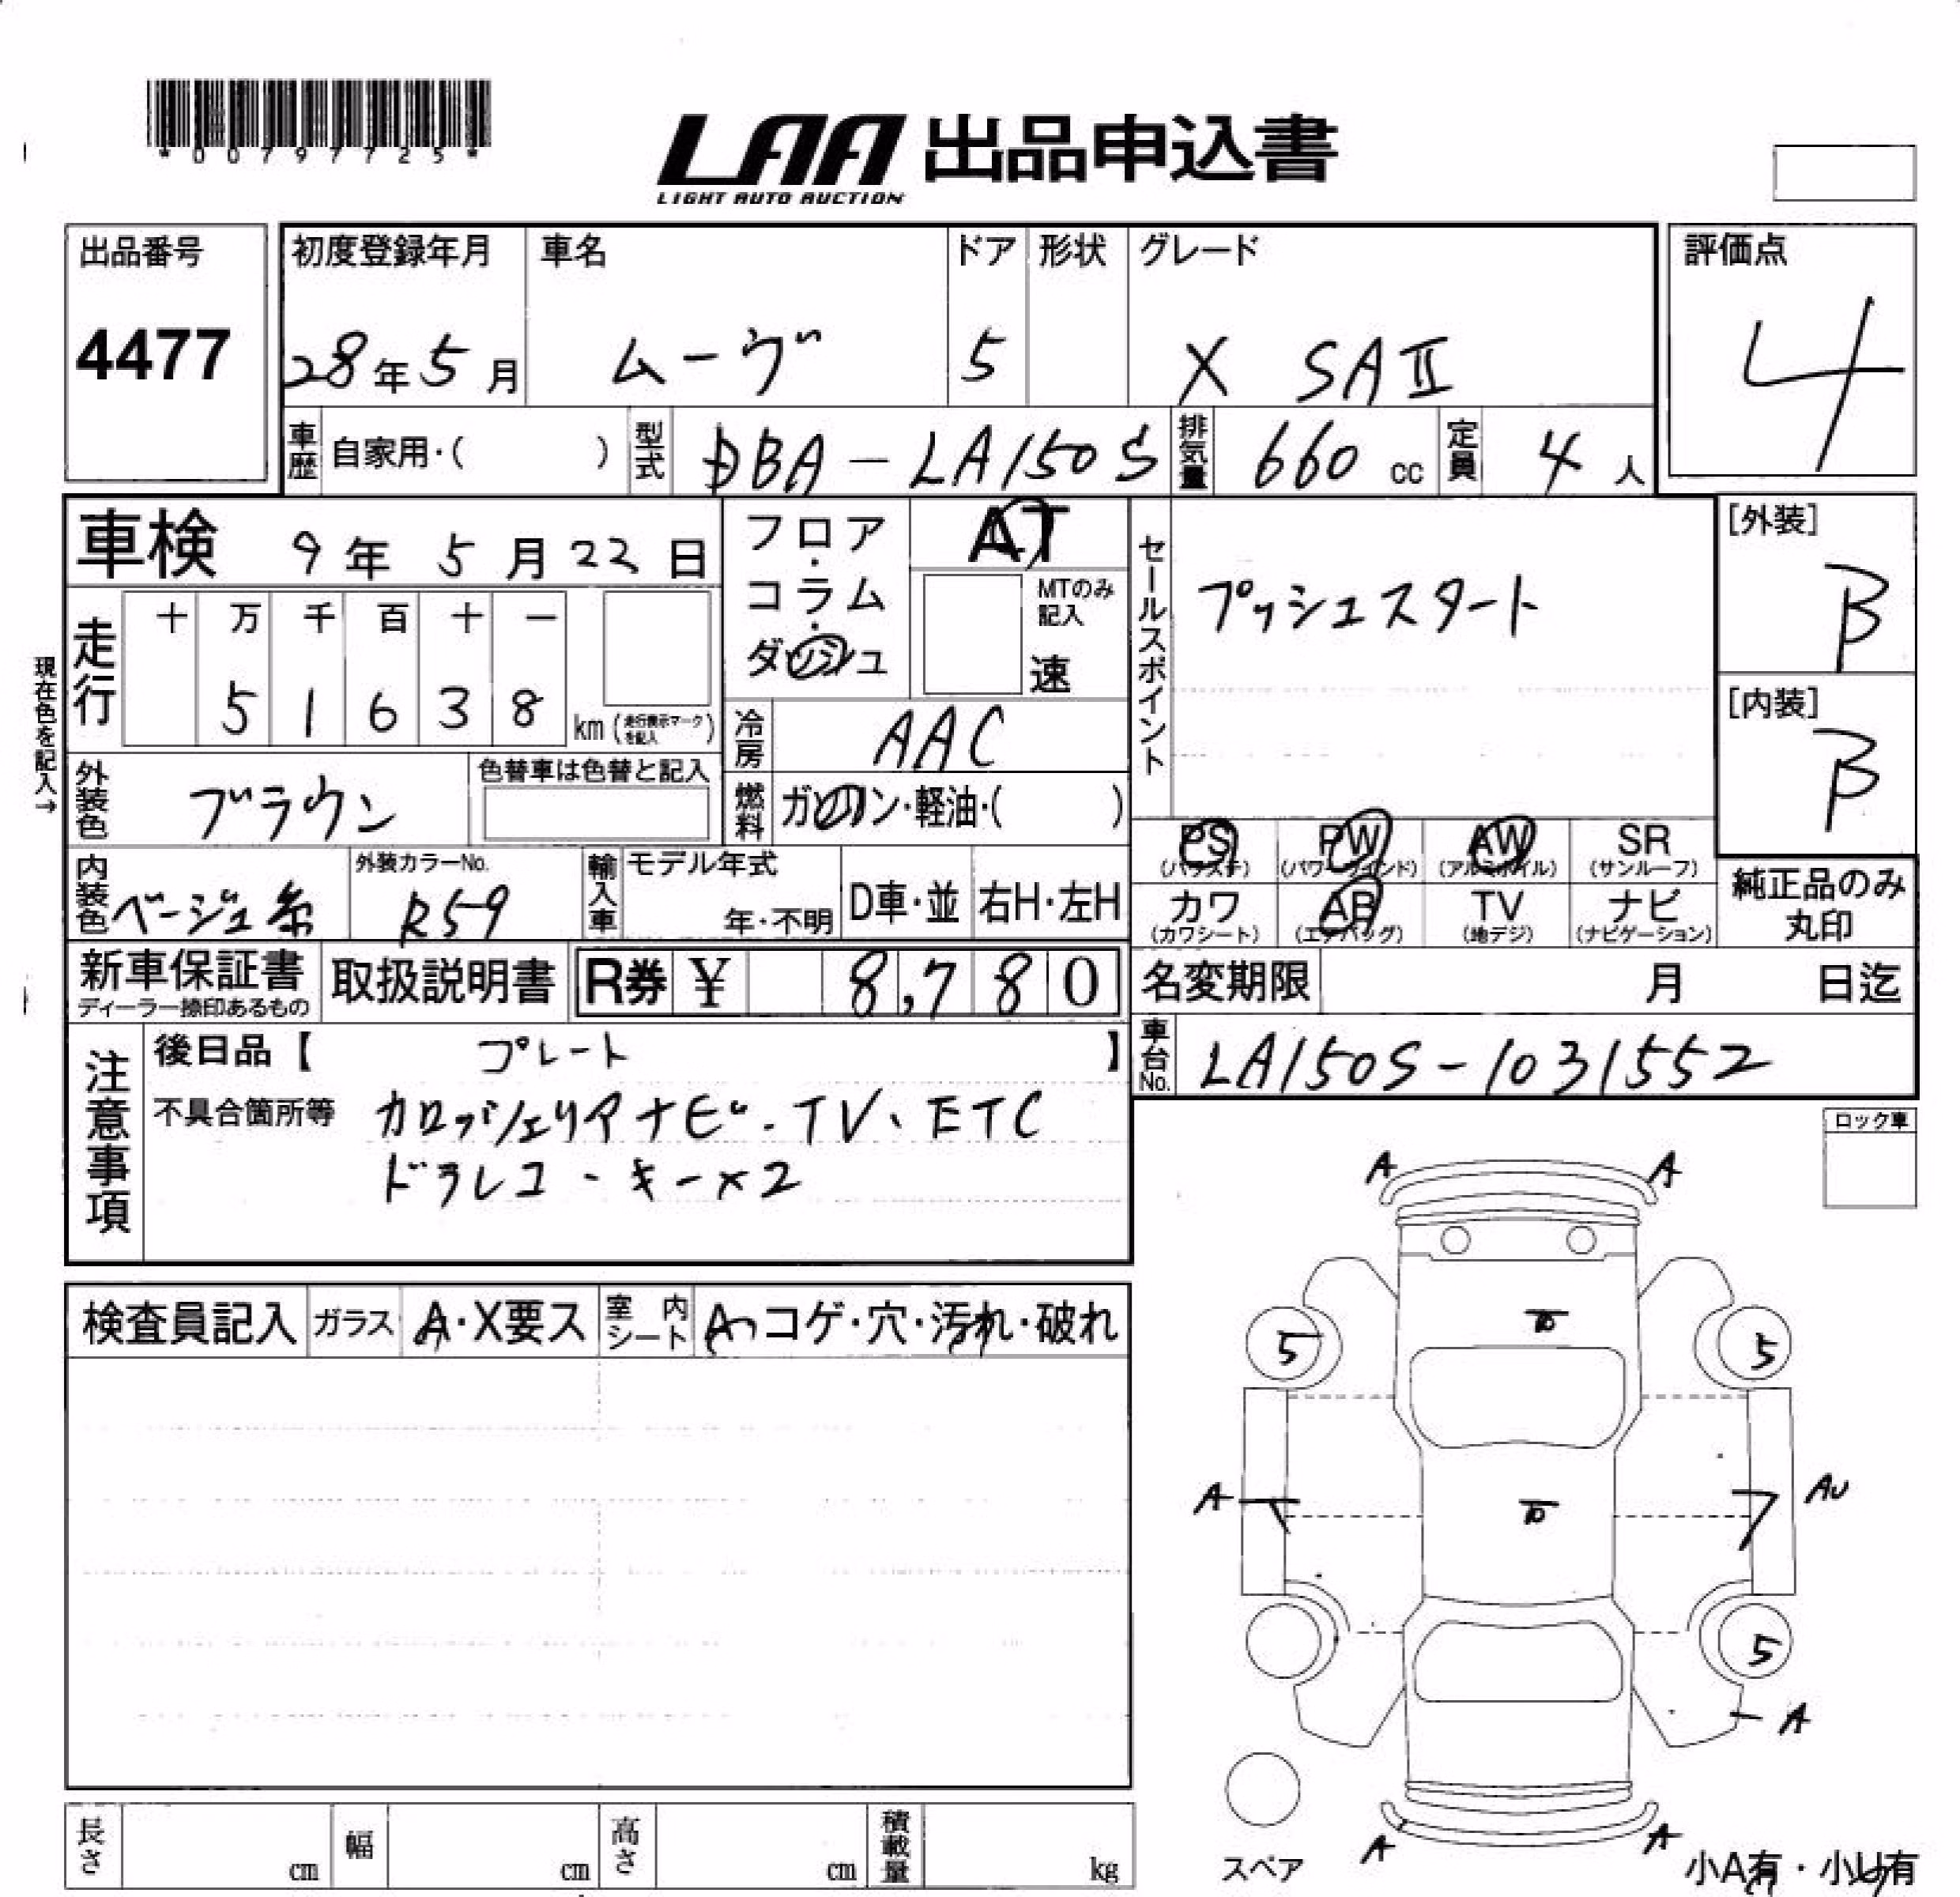 *0079 7725*
LAA 出品申込書
LIGHT AUTO AUCTION
出品番号
4477
初度登録年月
28年5月
車名
ムーヴ
ドア
5
形状
グレード
X SAⅡ
評価点
4
車歴
自家用・( )
型式
DBA-LA150S
排気量
660 cc
定員
4 人
車検 9年 5月22日
フロア・コラム・ダッシュ
AT
MTのみ記入
速
セールスポイント
プッシュスタート
[外装]
B
[内装]
B
現在色を記入→
走行
十 万 千 百 十 一
5 1 6 3 8
km (走行表示マークを記入)
冷房
AAC
外装色
ブラウン
色替車は色替と記入
燃料
ガソリン・軽油・( )
PS (パワステ)
PW (パワーウィンド)
AW (アルミホイル)
SR (サンルーフ)
カワ (カワシート)
AB (エアバッグ)
TV (地デジ)
ナビ (ナビゲーション)
純正品のみ丸印
内装色
ベージュ系
外装カラーNo.
R59
輸入車
モデル年式
年・不明
D車・並
右H・左H
新車保証書
ディーラー捺印あるもの
取扱説明書
R券 ¥ 8,780
名変期限 月 日迄
車台No.
LA150S-1031552
注意事項
後日品【 プレート 】
不具合箇所等 カロッツェリアナビ、TV、ETC
ドラレコ、キー×2
ロック車
検査員記入
ガラス
A・X要ス
室内シート
コゲ・穴・汚れ・破れ
A A
5 5
A AU
5
A
A A
スペア
小A有・小U有
長さ cm
幅 cm
高さ cm
積載量 kg